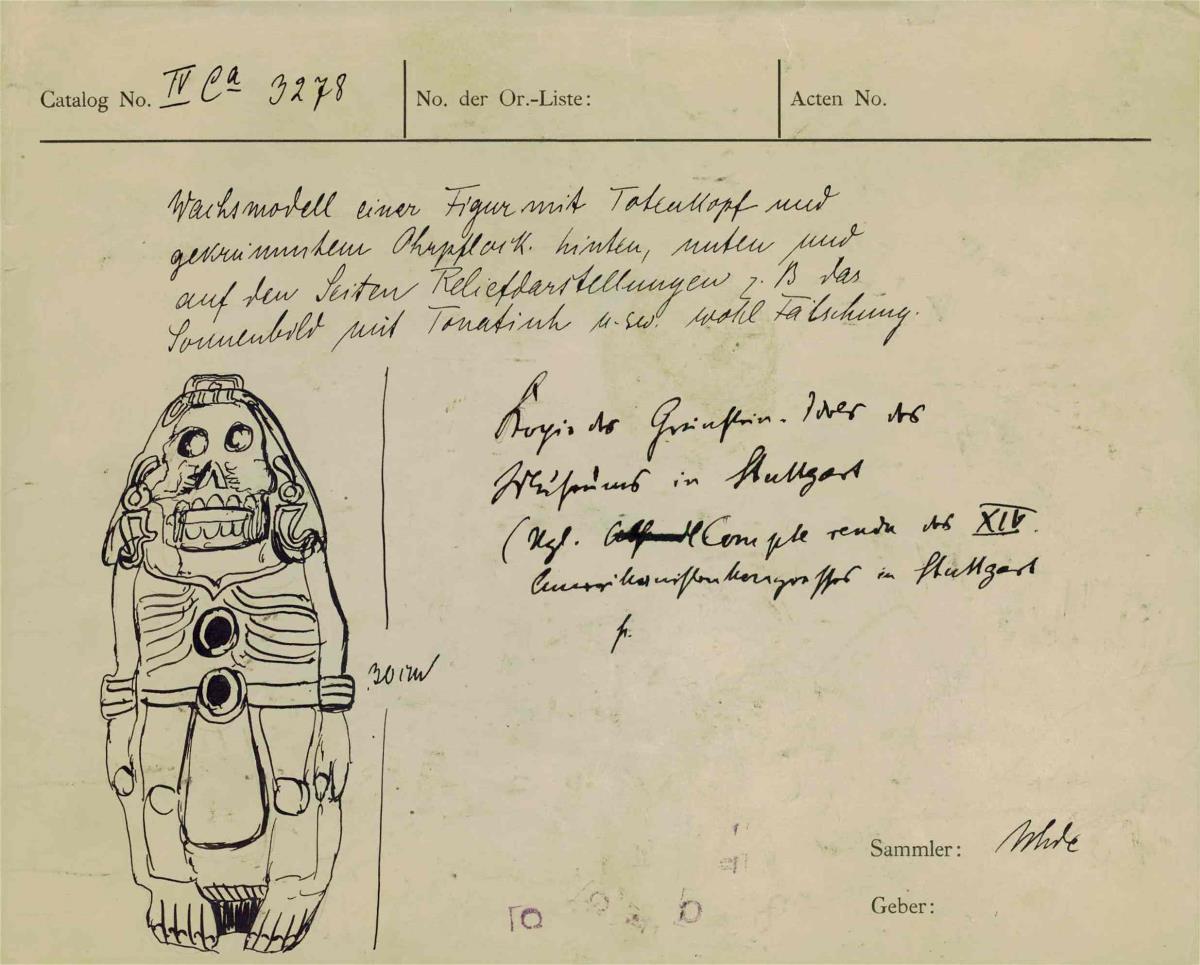 Catalog No. IV Ca 3278
No. der Or.-Liste:
Acten No.
Wachsmodell einer Figur mit Totenkopf und
gekrümmtem Ohrpflock. hinten, unten und
auf den Seiten Reliefdarstellungen z. B das
Sonnenbild mit Tonatiuh u.sw. wohl Fälschung.
Kopie des Grünstein-Idols des
Museums in Stuttgart
(Vgl. Compte rendu des XIV.
Amerikanistenkongresses in Stuttgart
30 cm
Sammler: Uhde
Geber: